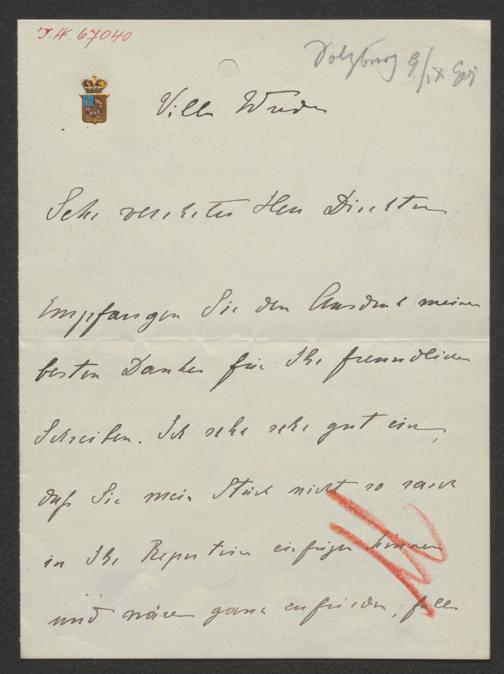 I.N. 67040
Salzburg 9/IX 
Villa Wrede
Sehr verehrter Herr Direktor
Empfangen Sie den Ausdruck meines
besten Dankes für Ihr freundliches
Schreiben. Ich sehe sehr gut ein,
daß Sie mein Stück nicht so rasch
in Ihr Repertoire einfügen können
und wäre ganz zufrieden, falls